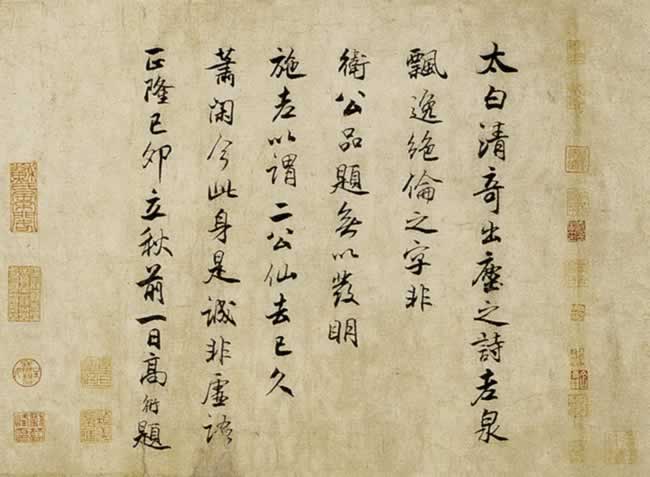 太白清奇出塵之詩老泉
飄逸絕倫之字非
衛公品題無以發明
施老以謂二公仙去已久
蕭閑今此身是誠非虛語
正隆己卯立秋前一日高衎題